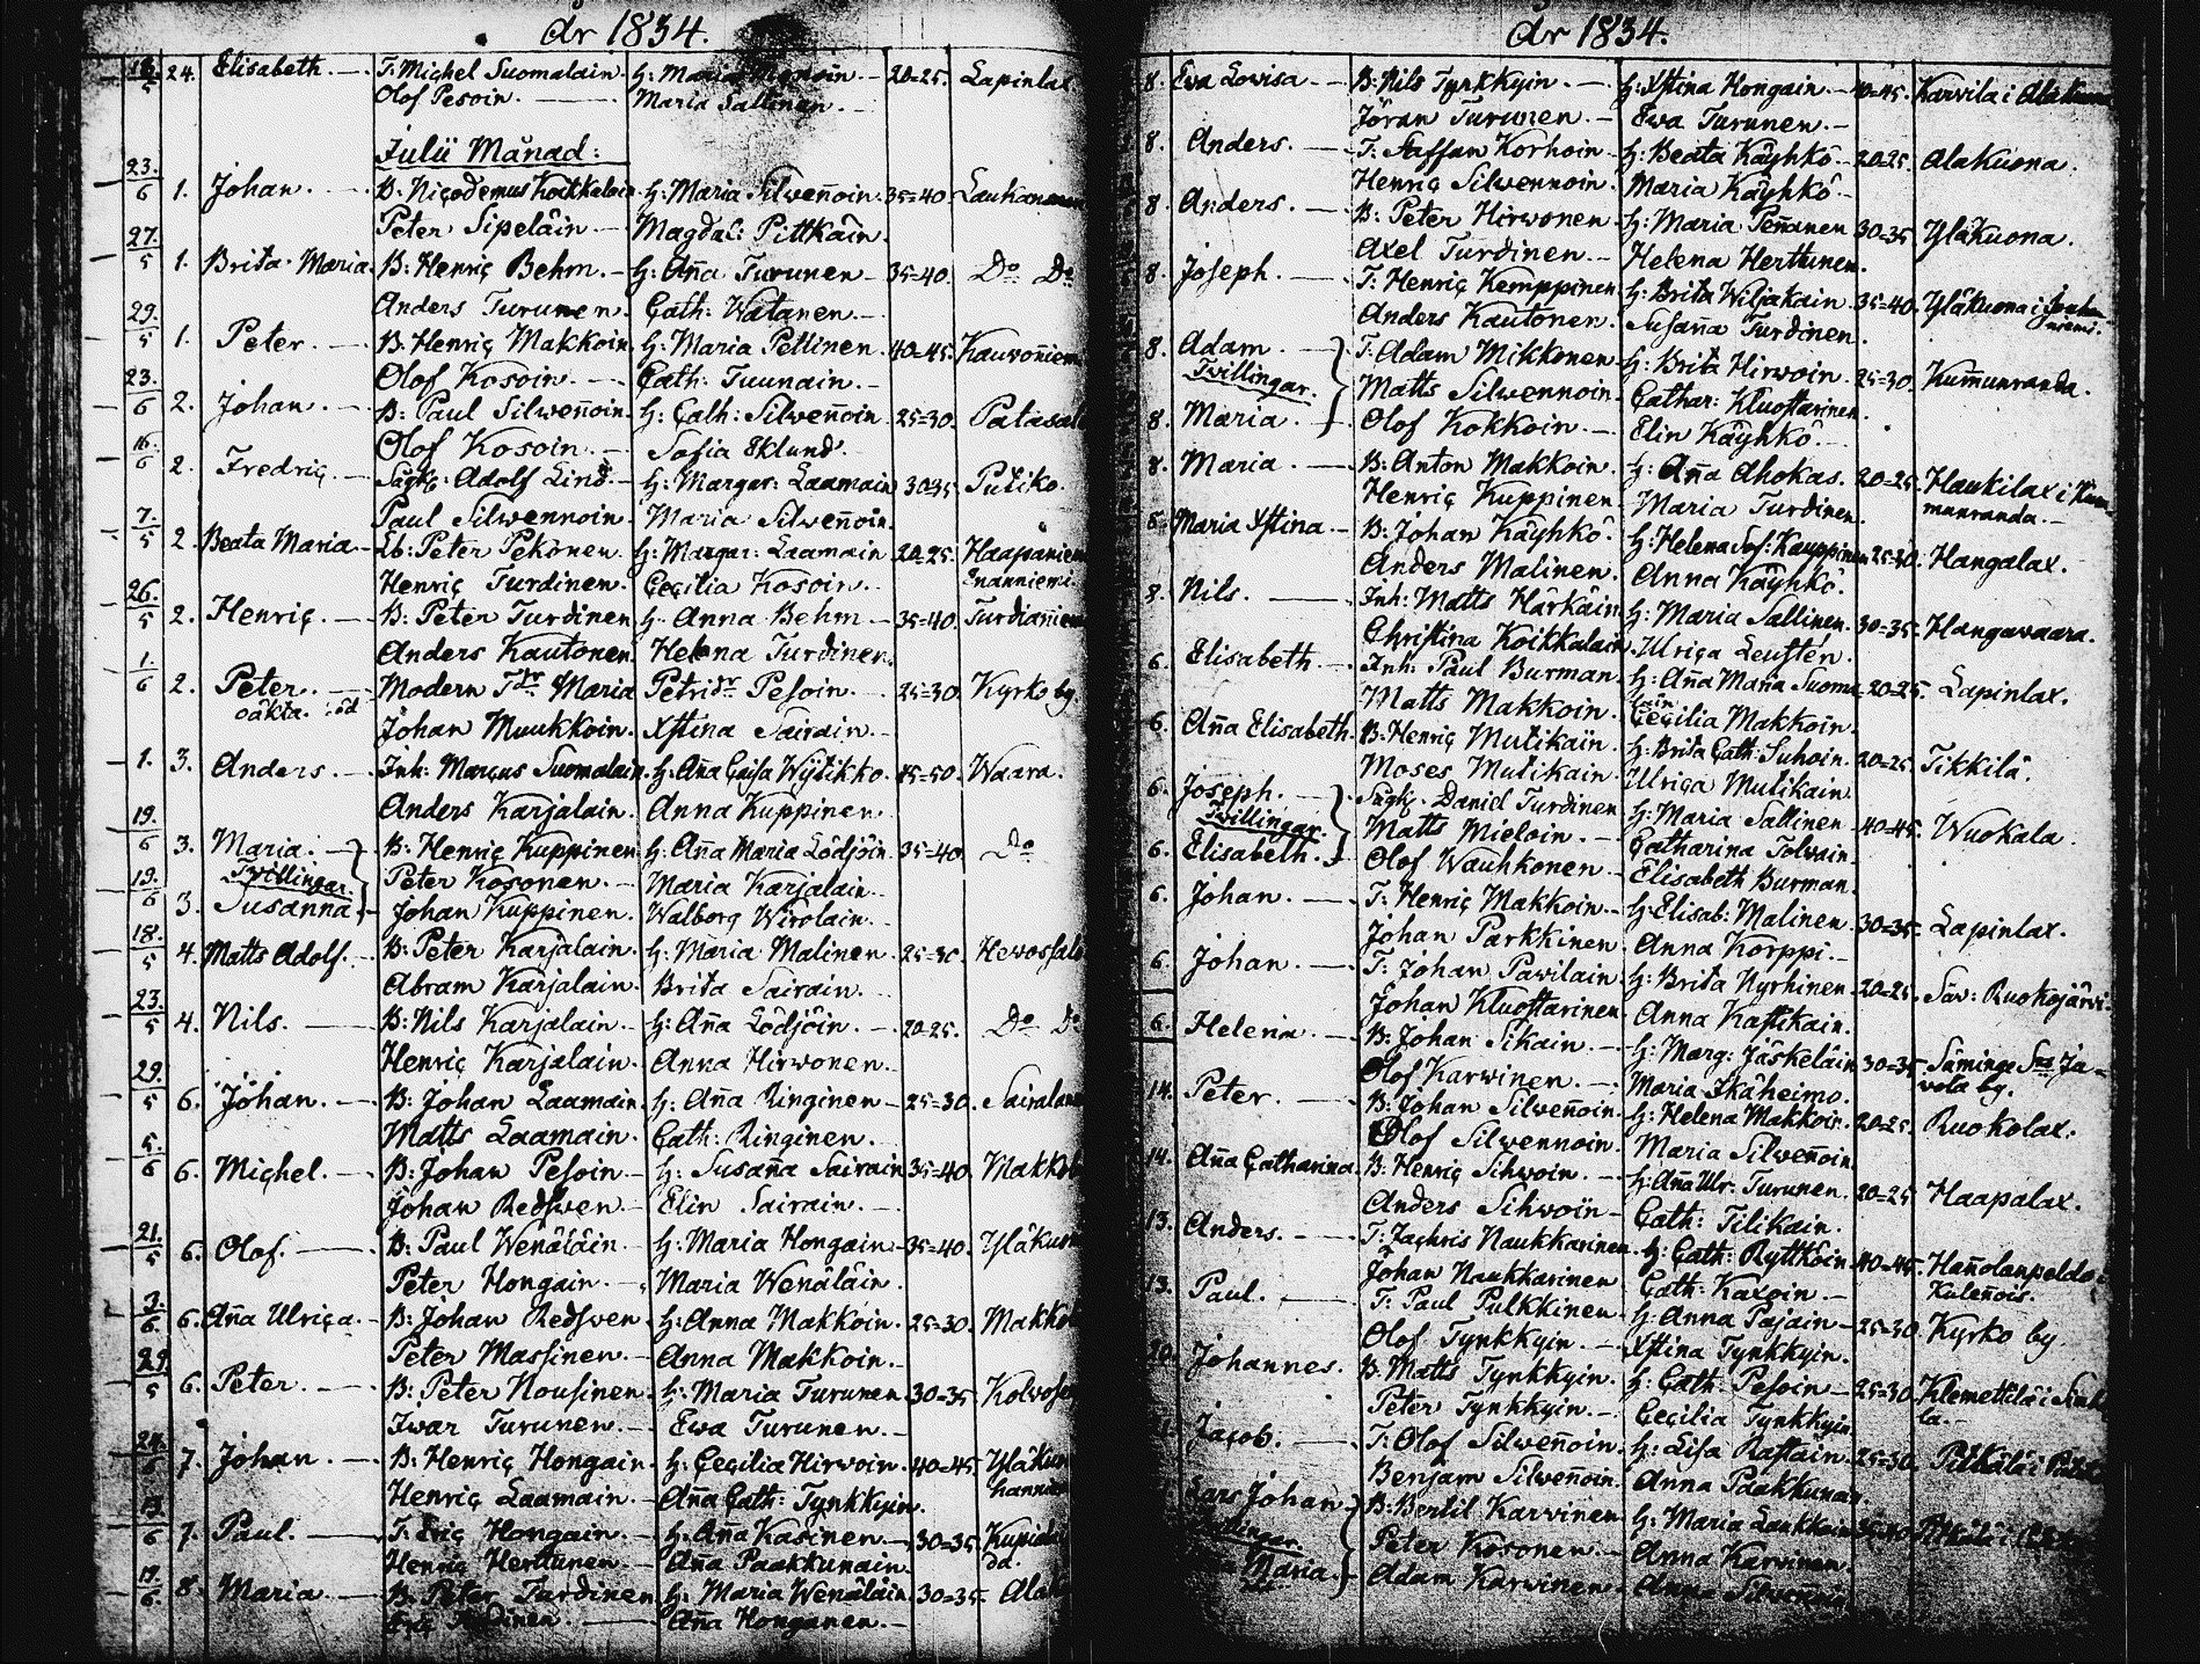 År 1834.
18/5 24. Elisabeth. T: Michel Suomalain. H: Maria 20=25. Lapinlax
Olof Pesoin. Maria Sallinen.
Julii Månad:
23./6 1. Johan. B. Niçodemus Koikkalain. H: Maria Silwen̄oin. 35=40
Peter Sipeläin Magdal: Pittkäin.
27./5 1. Brita Maria. B: Henriç Behm. H: An̄a Turunen 35=40. Do Do
Anders Turunen. Çath: Watanen.
29./5 1. Peter. B. Henriç Makkoin. H: Maria Pettinen. 40=45. Kauwon̄iem
Olof Kosoin. Çath: Tuunain.
23./6 2. Johan. B: Paul Silwen̄oin. H: Çath: Silwen̄oin 25=30. Patasal
Olof Kosoin. Sofia Eklund.
16./6 2. Fredriç. Adolf Lind. H: Margar: Laamain 30=35. Putiko.
Paul Silwennoin. Maria Silwen̄oin.
7./5 2. Beata Maria. Lb: Peter Pekonen. H: Margar: Laamain 20=25. Haapaniem
Henriç Turdinen. Çeçilia Kosoin. Enanniemi
26./5 2. Henriç. B: Peter Turdinen H. Anna Behm 35=40. Turdian̄iem
Anders Kautonen. Helena Turdinen.
1./6 2. Peter. Modern Maria Petridr Pesoin. 25=30. Kyrko by.
oäkta. Johan Muukkoin. Xstina Sairain.
1. 3. Anders. Inh: Marçus Suomalain. H: An̄a Çaisa Wijtikko. 45=50. Waara.
Anders Karjalain. Anna Kuppinen.
19./6 3. Maria. B: Henriç Kuppinen H: An̄a Maria Lödjöin. 35=40. Do
Twillingar. Peter Kosonen. Maria Karjalain.
19./6 3. Susanna. Johan Kuppinen. Walborg Wirolain.
18./5 4. Matts Adolf. B: Peter Karjalain. H: Maria Malinen. 25=30. Hewossal
Abram Karjalain. Brita Sairain.
23./5 4. Nils. B: Nils Karjalain. H: An̄a Lödjöin. 20=25. Do Do
Henriç Karjalain. Anna Hirwonen.
29./5 6. Johan. B: Johan Laamain. H: An̄a Ringinen 25=30.
Matts Laamain. Çath: Ringinen.
5./6 6. Michel. B: Johan Pesoin. H: Susan̄a Sairain 35=40. Makko
Johan Redswen. Elin Sairain.
21./5 6. Olof. B: Paul Wenäläin. H: Maria Hongain. 35=40. Yläkuo
Peter Hongain. Maria Wenäläin.
3./6. 6. An̄a Ulriça. B: Johan Redswen. H: Anna Makkoin. 25=30. Makko
Peter Massinen. Anna Makkoin.
29./5 6. Peter. B: Peter Nousinen. H: Maria Turunen 30=35. Kolwose
Iwar Turunen. Ewa Turunen.
24./6 7. Johan. B: Henriç Hongain. H: Çeçilia Hirwoin. 40=45. Yläkuo
Henriç Laamain. An̄a Çath: Tynkkyin.
19./6 7. Paul. T: Eriç Hongain. H: An̄a Kasinen. 30=35.
Henriç Herttunen. An̄a Paakkunain.
19./6. 8. Maria. B. Peter Turdinen H: Maria Wenäläin. 30=35.
An̄a Honganen.
År 1834.
8. Ewa Lowisa B: Nils Tynkkyin. H: Xstina Hongain. 40=45. Karvila i Alakuona
Jöran Turunen. Ewa Turunen.
8. Anders. T: Staffan Korhoin H: Beata Käyhkö 20=25. Alakuona.
Henriç Silwennoin. Maria Käyhkö.
8. Anders. B: Peter Hirwonen H: Maria Pen̄anen 30=35 Yläkuona.
Axel Turdinen. Helena Herttunen.
8. Joseph. T: Henriç Kemppinen H: Brita Wiljakain. 35=40. Yläkuona i
Anders Kautonen. Susan̄a Turdinen.
8. Adam T: Adam Mikkonen H: Brita Hirwoin. 25=30. Kum̄unranda.
Twillingar. Matts Silwennoin. Çathar: Kluostarinen.
8. Maria. Olof Kokkoin. Elin Käyhkö.
8. Maria. B: Anton Makkoin. H: An̄a Ahokas. 20=25. Haukilax i Kum=
Henriç Kuppinen. Maria Turdinen. manranda.
8. Maria Xstina. B: Johan Käyhkö. H: Helena Sof: Kauppinen 25=30. Hangalax.
Anders Malinen. Anna Käyhkö.
8. Nils. Inh: Matts Härkäin. H: Maria Sallinen. 30=35. Hangawaara.
Christina Koikkalain. Ulriça Leustén.
6. Elisabeth. Inh: Paul Burman. H: An̄a Maria Suoma= 20=25. Lapinlax.
lain
Matts Makkoin. Çeçilia Makkoin.
6. An̄a Elisabeth. B: Henriç Mutikain. H: Brita Çath: Suhoin. 20=25. Tikkilä.
Moses Mutikain. Ulriça Mutikain.
6. Joseph. Daniel Turdinen H: Maria Sallinen 40=45. Wuokala.
Twillingar. Matts Mieloin. Çatharina Tolwain.
6. Elisabeth. Olof Wauhkonen. Elisabeth Burman.
6. Johan. T: Henriç Makkoin. H: Elisab: Malinen. 30=35. Lapinlax.
Johan Parkkinen. Anna Korppi.
6. Johan. T: Johan Pawilain. H: Brita Nyrhinen 20=25. Säv: Ruokojärvi.
Johan Kluostarinen. Anna Kastikain.
6. Helena. B: Johan Sikain. H: Marg: Jäskeläin 30=35 Säminge Ja=
Olof Karwinen. Maria Ikäheimo. wola by.
14. Peter. B: Johan Silwen̄oin. H: Helena Makkoin. 20=25. Ruokolax.
Olof Silwennoin. Maria Silwen̄oin.
14. An̄a Çatharina. B: Henriç Sihwoin. H: An̄a Ulr: Turunen. 20=25 Haapalax.
Anders Sihwoin. Çath: Tilikain.
13. Anders. T: Zachris Naukkarinen. H: Çath: Ryttköin 40=45. Han̄olanpeldo
Johan Naukkarinen Çath: Kaxoin. Kulen̄ois.
13. Paul. T: Paul Pulkkinen H: Anna Pajain 25=30. Kyrko by
Olof Tynkkyin. Xstina Tynkkyin.
20. Johannes. B. Matts Tynkkyin. H: Çath: Pesoin 25=30. Klemettilä i
Peter Tynkkyin. Çeçilia Tynkkyin. la.
Jacob. T: Olof Silwen̄oin. H: Lisa Rastain. 25=30. Pitkälä i
Benjam Silwen̄oin. Anna Paakkunain.
Lars Johan B: Bertil Karvinen H: Maria Laukkain
Twillingar. Peter Kosonen. Anna Karvinen.
Maria. Adam Karvinen. Anna Silwen̄oin